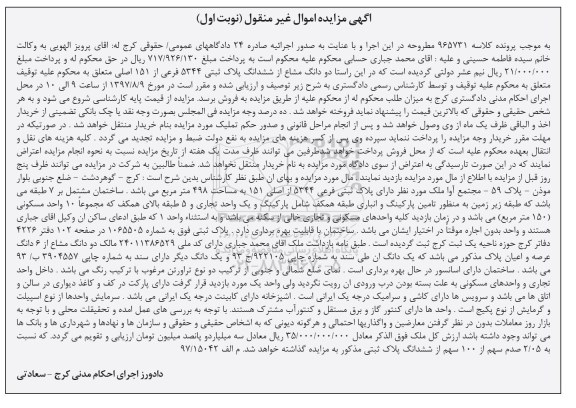 آگهی مزایده اموال غیر منقول (نوبت اول)
به موجب پرونده کلاسه ۹۶۵۷۳۱ مطروحه در این اجرا و با عنایت به صدور اجرائیه صادره ۲۴ دادگاههای عمومی/ حقوقی کرج له: آقای پرویز الهویی به وکالت
خانم سیده فاطمه حسینی و علیه : آقای محمد جباری حسابی محکوم علیه محکوم است به پرداخت مبلغ ۷۱۷/۹۲۶/۱۳۰ ریال در حق محکوم له و پرداخت مبلغ
۲۱/۰۰۰/۰۰۰ ریال نیم عشر دولتی گردیده است که در این راستا دو دانگ مشاع از ششدانگ پلاک ثبتی ۵۳۴۴ فرعی از ۱۵۱ اصلی متعلق به محکوم علیه توقیف
متعلق به محکوم علیه توقیف و توسط کارشناس رسمی دادگستری به شرح زیر توصیف و ارزیابی شده و مقرر است در مورخ ۱۳۹۷/۸/۹ از ساعت ۹ الی ۱۰ در محل
اجرای احکام مدنی دادگستری کرج به میزان طلب محکوم له از محکوم علیه از طریق مزایده به فروش برسد. مزایده از قیمت پایه کارشناسی شروع می شود و به هر
شخص حقیقی و حقوقی که بالاترین قیمت را پیشنهاد نماید فروخته خواهد شد . ده درصد وجه مزایده فی المجلس بصورت وجه نقد یا چک بانکی تضمینی از خریدار
اخذ و الباقی ظرف یک ماه از وی وصول خواهد شد و پس از انجام مراحل قانونی و صدور حکم تملیک مورد مزایده بنام خریدار منتقل خواهد شد . در صورتیکه در
مهلت مقرر خریدار وجه مزایده را پرداخت ننماید سپرده وی پس از کسر هزینه های مزایده به نفع دولت ضبط و مزایده تجدید می گردد . کلیه هزینه های نقل و
انتقال بعهده محکوم علیه است که از محل فروش پرداخت خواهد شد طرفین می توانند ظرف مدت یک هفته از تاریخ مزایده نسبت به نحوه انجام مزایده اعتراض
نمایند که در این صورت تا رسیدگی به اعتراض از سوی دادگاه مورد مزایده به نام خریدار منتقل نخواهد شد. ضمنا طالبین به شرکت در مزایده می توانند ظرف پنج
روز قبل از مزایده با اطلاع از مال مورد مزایده بازدید نمایند. مال مورد مزایده و بهای آن طبق نظر کارشناس بدین شرح است : کرج – گوهردشت – ضلع جنوبی بلوار
موذن – پلاک ۵۹ – مجتمع آوا ملک مورد نظر دارای پلاک ثبتی فرعی ۵۳۴۴ از اصلی ۱۵۱ به مساحت ۴۹۸ متر مربع می باشد . ساختمان مشتمل بر ۷ طبقه می
باشد که طبقه زیر زمین به منظور تامین پارکینگ و انباری طبقه همکف شامل پارکینگ و یک واحد تجاری و ۵ طبقه بالای همکف که مجموعا ۱۰ واحد مسکونی
(۱۵۰ متر مربع) می باشد و در زمان بازدید کلیه واحدهای مسکونی و تجاری خالی از سکنه می باشد و به استثناء واحد ۱ که طبق ادعای ساکن آن وکیل آقای جباری
هستند و واحد بدون اجاره موقتا در اختیار ایشان می باشد . ساختمان با قابلیت بهره برداری دارد . پلاک ثبتی فوق به شماره ۱۰۶۵۵۰۵ در صفحه ۱۰۲ دفتر ۴۲۲۶
دفاتر کرج حوزه ناحیه یک ثبت کرج ثبت گردیده است . طبق نامه بازداشت ملک آقای محمد جباری دارای کد ملی ۲۴۰۱۱۳۸۶۵۲۹ مالک دو دانگ مشاع از ۶ دانگ
عرصه و اعیان پلاک مذکور می باشد که یک دانگ آن طی سند به شماره چاپی ۹۲۲۱۰۵ج ۹۳ و یک دانگ دیگر دارای سند به شماره چاپی ۳۹۰۴۵۵۷ ب/ ۹۳
می باشد . ساختمان دارای آسانسور در حال بهره برداری است . نمای ضلع شمالی و جنوبی آن از ترکیب دو نوع تراورتن مرغوب با ترکیب رنگ می باشد . داخل واحد
تجاری و واحدهای مسکونی به علت بسته بودن درب ورودی آن رویت نگردید ولی واحد یک مورد بازدید قرار گرفت دارای پارکت در کف و کاغذ دیواری در سالن و
اتاق ها می باشد و سرویس ها دارای کاشی و سرامیک درجه یک ایرانی است . آشپزخانه دارای کابینت درجه یک ایرانی می باشد . سرمایش واحدها از نوع اسپیلت
و گرمایش از نوع پکیج است . واحد ها دارای کنتور گاز و برق مستقل و کنتور آب مشترک هستند. با توجه به بررسی های عمل آمده و تحقیقات محلی و با توجه به
بازار روز معاملات بدون در نظر گرفتن معارضین و واگذاریها احتمالی و هرگونه دیونی که به اشخاص حقیقی و حقوقی و سازمان ها و نهادها و شهرداری ها و بانک ها
می تواند وجود داشته باشد ارزش کل ملک فوق الذکر معادل ۳۵/۰۰۰/۰۰۰/۰۰۰ ریال معادل سه میلیارد و پانصد میلیون تومان ارزیابی و تقویم می گردد. که نسبت
به ۲/۰۵ صدم سهم از ۱۰۰ سهم از ششدانگ پلاک ثبتی مذکور به مزایده گذاشته خواهد شد. م الف ۹۷/۱۵۰۴۲
دادورز اجرای احکام مدنی کرج – سعادتی